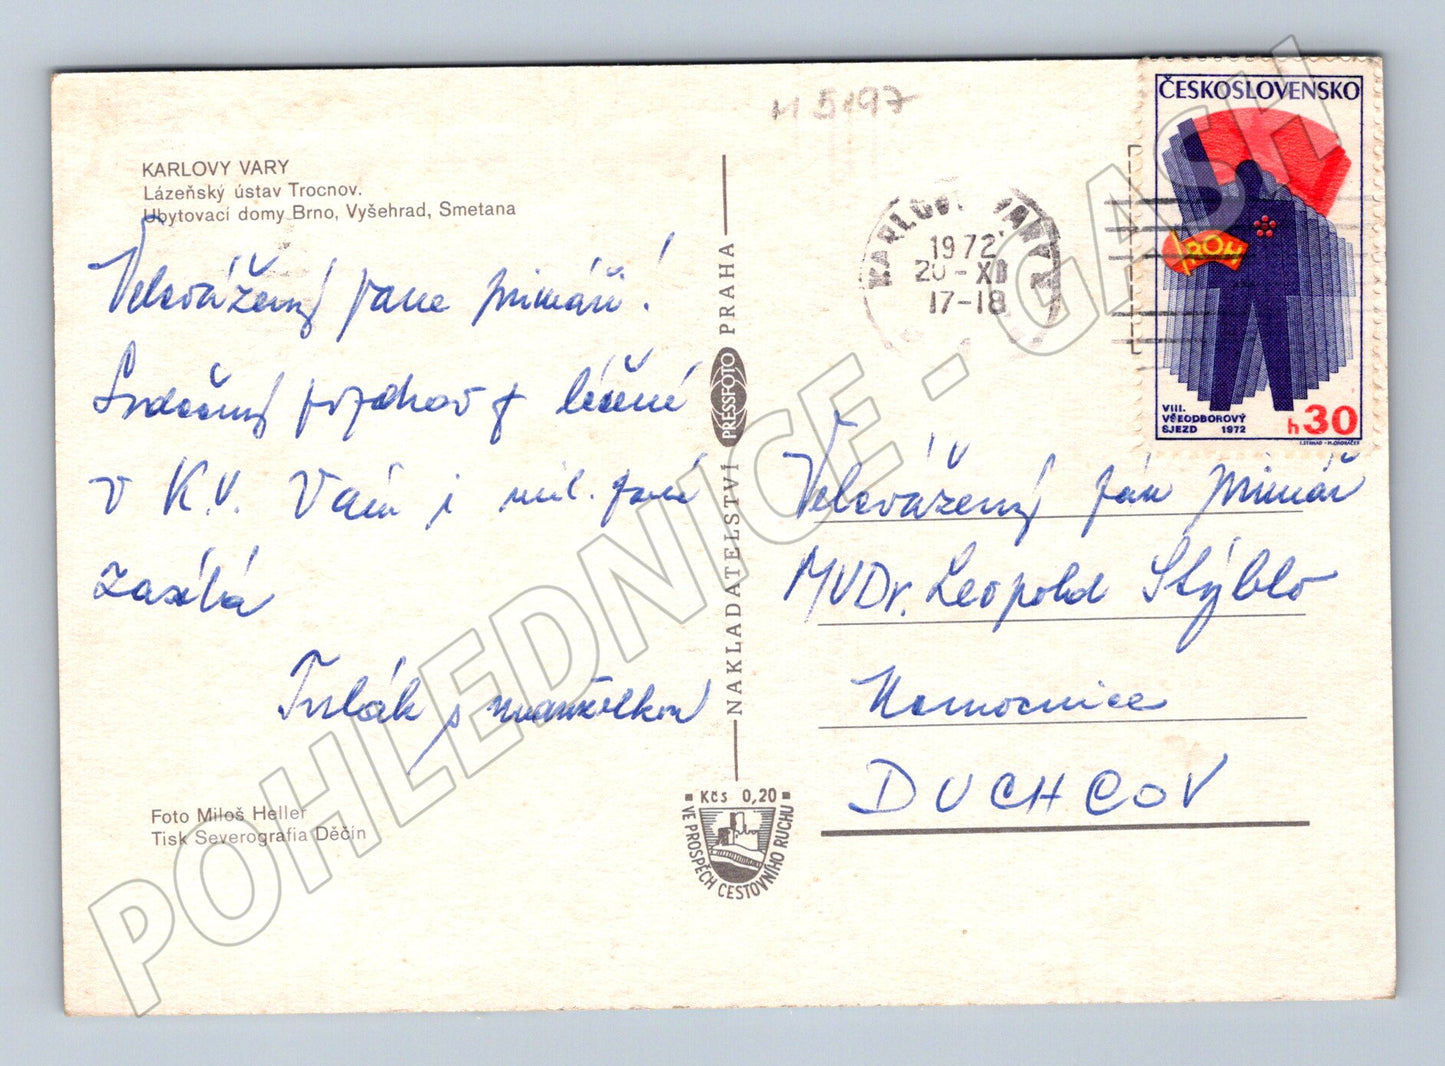 M 5197
KARLOVY VARY
Lázeňský ústav Trocnov.
Ubytovací domy Brno, Vyšehrad, Smetana
Velevážený pane primáři!
Srdečný pozdrav z léčení
v K.V. Vám i mil. paní
zasílá
Tulák s manželkou
Foto Miloš Heller
Tisk Severografia Děčín
NAKLADATELSTVÍ PRESSFOTO PRAHA
Kčs 0,20
VE PROSPĚCH CESTOVNÍHO RUCHU
KARLOVY VARY
1972
20-XII
17-18
ČESKOSLOVENSKO
ROH
VIII.
VŠEODBOROVÝ
SJEZD 1972
h30
Velevážený pán primář
MUDr. Leopold Stýblo
Nemocnice
DUCHCOV
POHLEDNICE - GASH